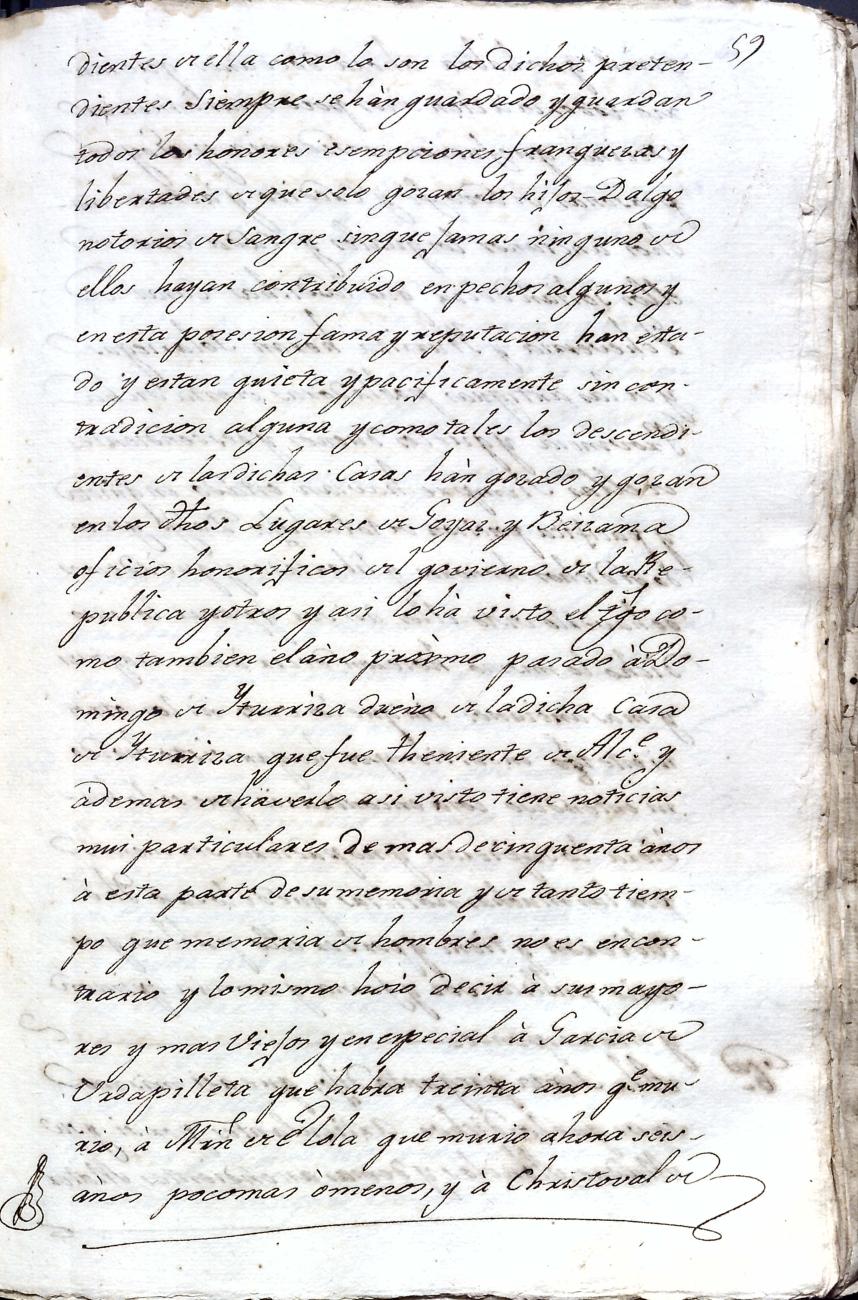 59
dientes de ella como lo son los dichos preten-
dientes siempre se hàn guardado y guardan
todos los honores esempciones, franquezas y
libertades de que solo gozan los hijos Dalgo
notorios de sangre sin que jamas ninguno de
ellos hayan contribuido en pechos algunos y
en esta posesion fama y reputacion han esta-
do y estan quieta y pacificamente sin con-
tradicion alguna y como tales los descendi-
entes de las dichas Casas hàn gozado y gozan
en los dhos Lugares de Goyaz y Beizama
oficios honorificos del govierno de la Re-
publica y otros y asi lo hà visto el tgo co-
mo tambien el año proximo pasado à Do-
mingo de Yturriza dueño de la dicha Casa
de Yturriza que fue theniente de Alce. y
àdemas de haverlo asi visto tiene noticias
mui particulares de mas de cinquenta años
à esta parte de su memoria y de tanto tiem-
po que memoria de hombres no es en con-
trario y lo mismo hoio decir à sus mayo-
res y mas Viejos y en especial à Garcia de
Urdapilleta que habra treinta años qe. mu-
rio, à Mrn de Elola que murio ahora seis
años poco mas òmenos, y à Christoval de